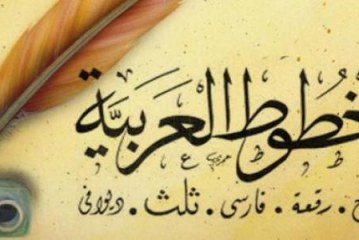 خطوط العربية
رقعة . فارسي . ثلث . ديواني